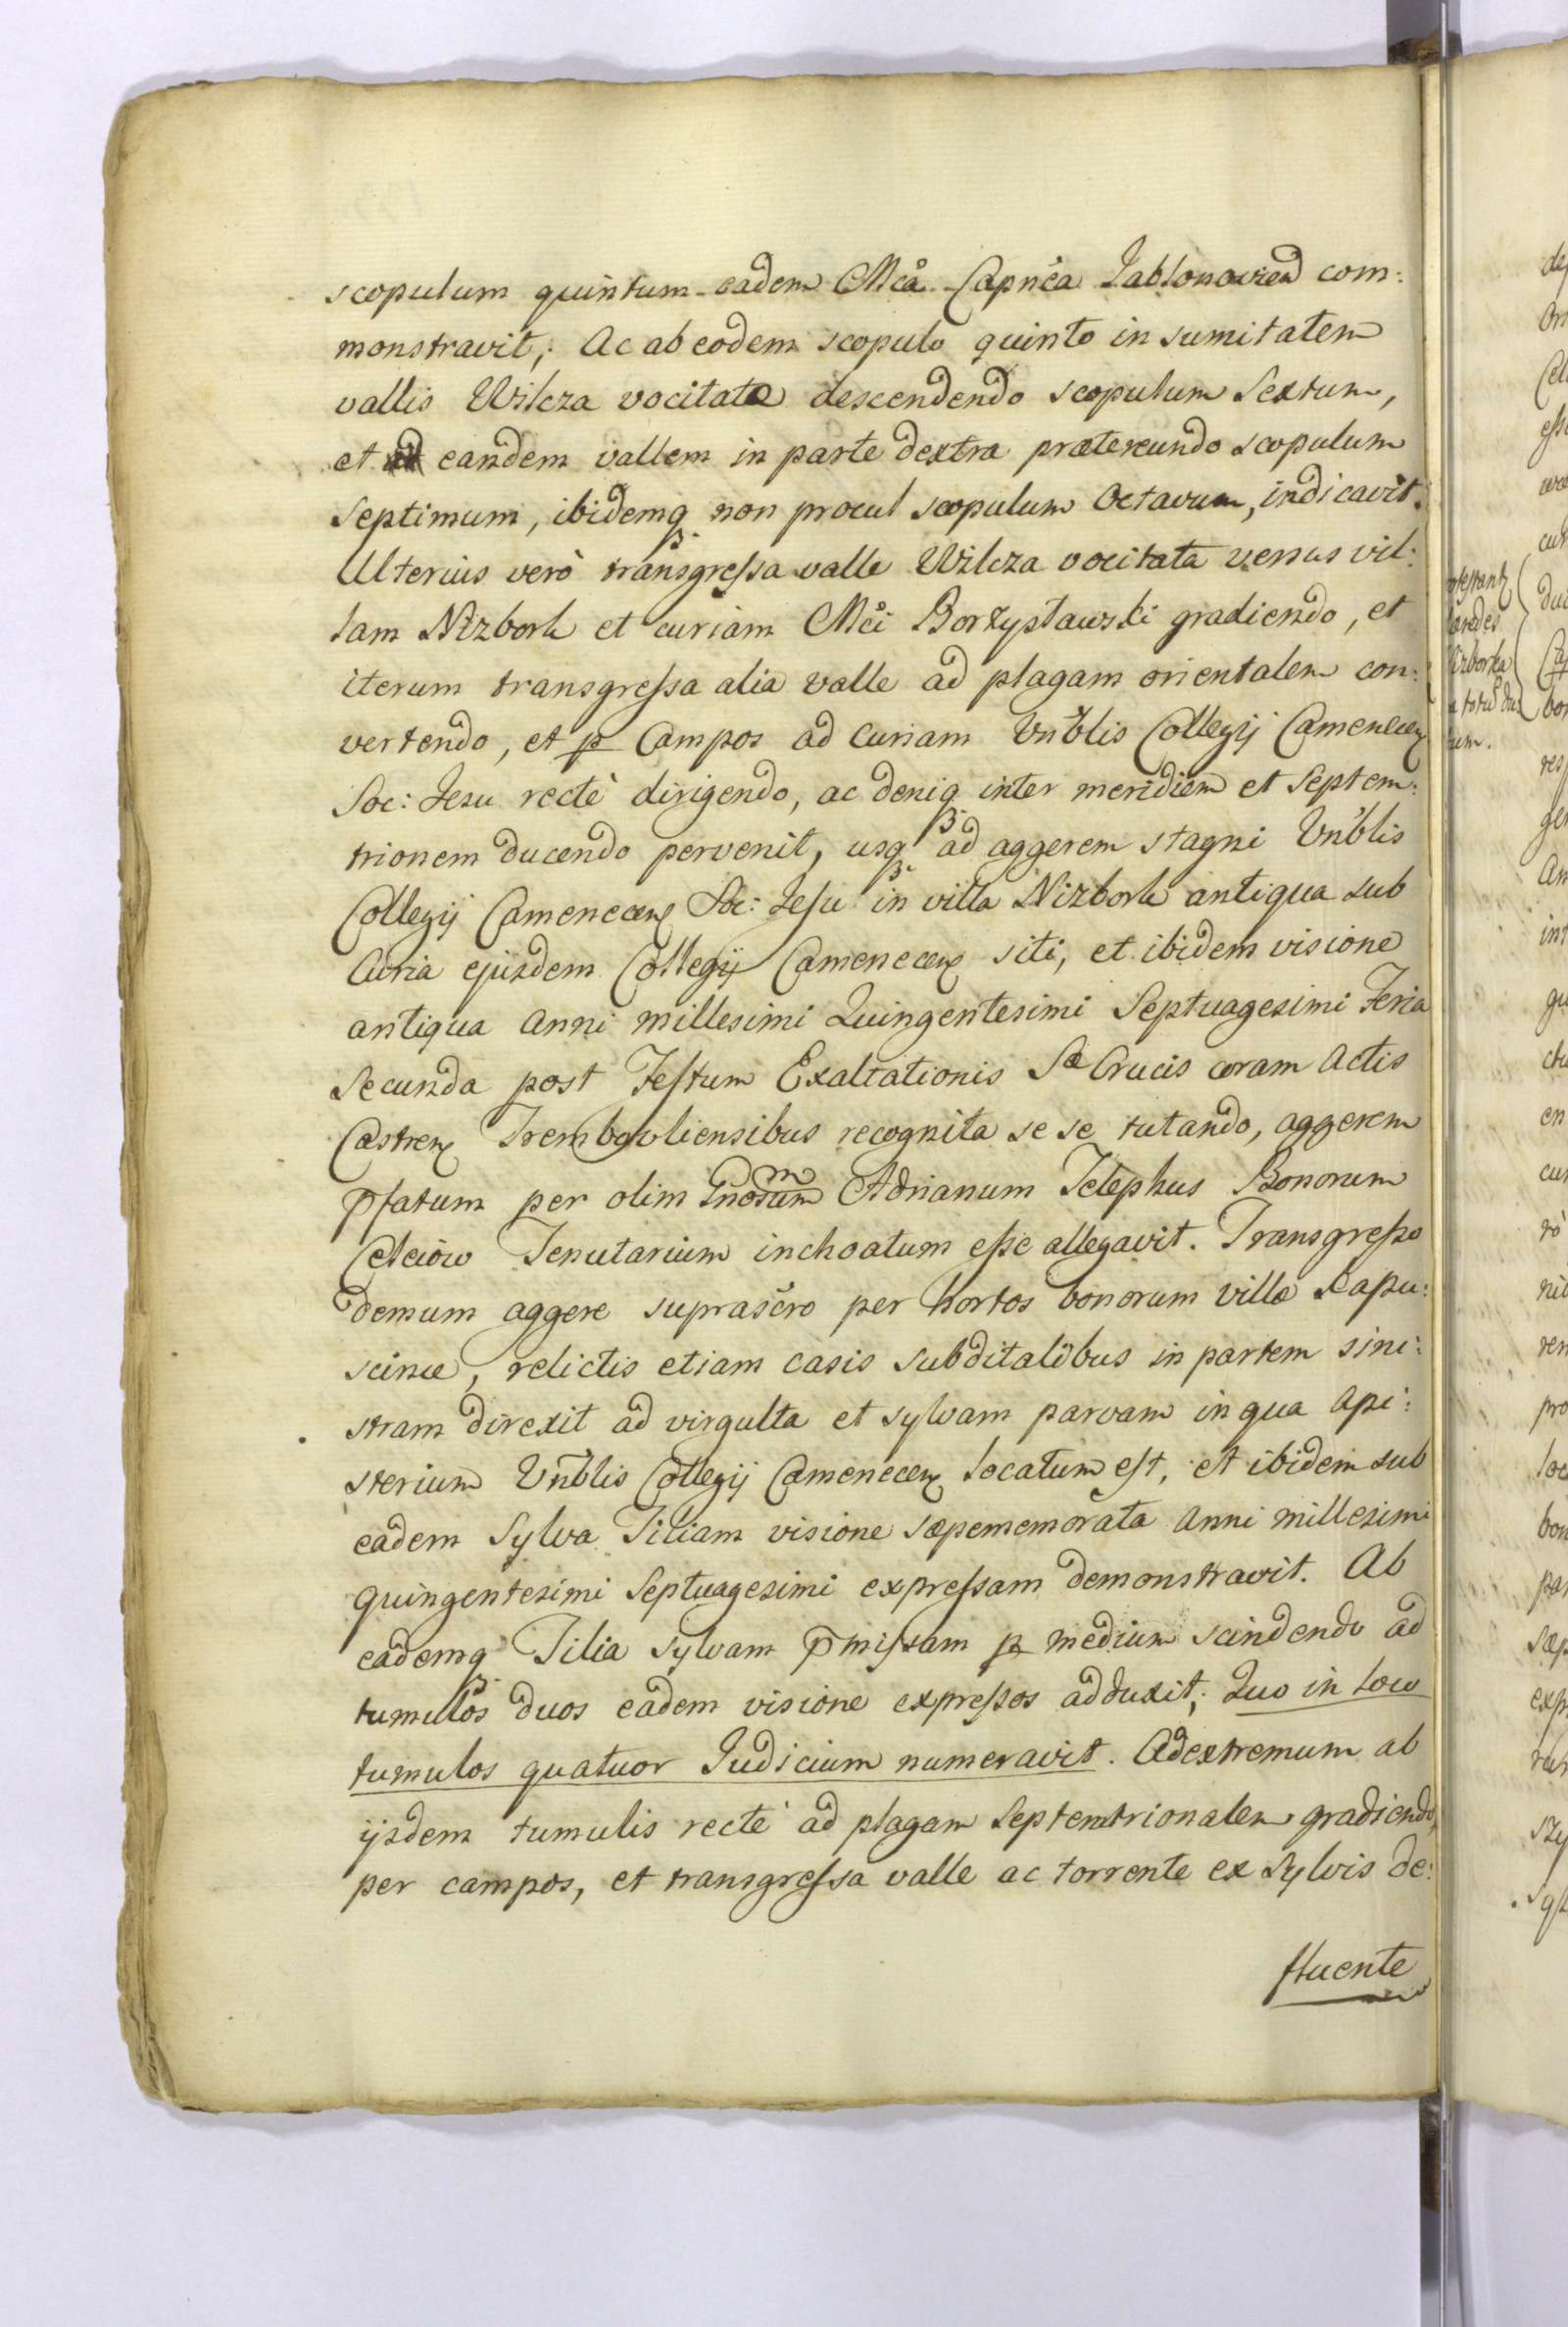 scopulum quintum eadem Mcà Capnéa Jablonoviend com:
monstravit; Ac ab eodem scopulo quinto in sumitatem
vallis Wilcza vocitatæ descendendo scopulum Sextum,
et eandem vallem in parte dextra prætereundo scopulum
Septimum, ibidemq non procul scopulum Octavum, indicavit.
Ulterius verò transgressa valle Wilcza vocitata versus vil:
lam Nizbork et curiam Mci Borzysławski gradiendo, et
iterum transgressa alia valle ad plagam orientalem con:
vertendo, et p Campos ad Curiam Vnblis Collegij Camenecen
Soc: Jesu rectè dirigendo, ac deniq inter meridiem et Septem:
trionem ducendo pervenit, usq ad aggerem stagni Vnblis
Collegij Camenecen Soc: Jesu in villa Nizbork antiqua sub
Curia ejusdem Collegij Camenecen siti, et ibidem visione
antiqua Anni millesimi Quingentesimi Septuagesimi Feria
Secunda post Festum Exaltationis Sæ Crucis coram Actis
Castren Trembowliensibus recognita se se tutando, aggerem
pfatum per olim Gnosum Adrianum Telephus Bonorum
Celeiów Tenutarium inchoatum esse allegavit. Transgresso
demum aggere suprascro per hortos bonorum villæ Kapu:
scince, relictis etiam casis subditalibus in partem sini:
stram direxit ad virgulta et sylvam parvam in qua api:
sterium Vnblis Collegij Camenecen locatum est, et ibidem sub
eadem Sylva Tiliam visione sæpememorata Anni millesimi
quingentesimi Septuagesimi expressam demonstravit. Ab
eademq Tilia sylvam pmissam p medium scindendo ad
tumulos duos eadem visione expressos adduxit; Quo in loco
tumulos quatuor Judicium numeravit. Adextremum ab
ijsdem tumulis rectè ad plagam Septemtrionalem gradiendo,
per campos, et transgressa valle ac torrente ex Sylvis de:
fluente